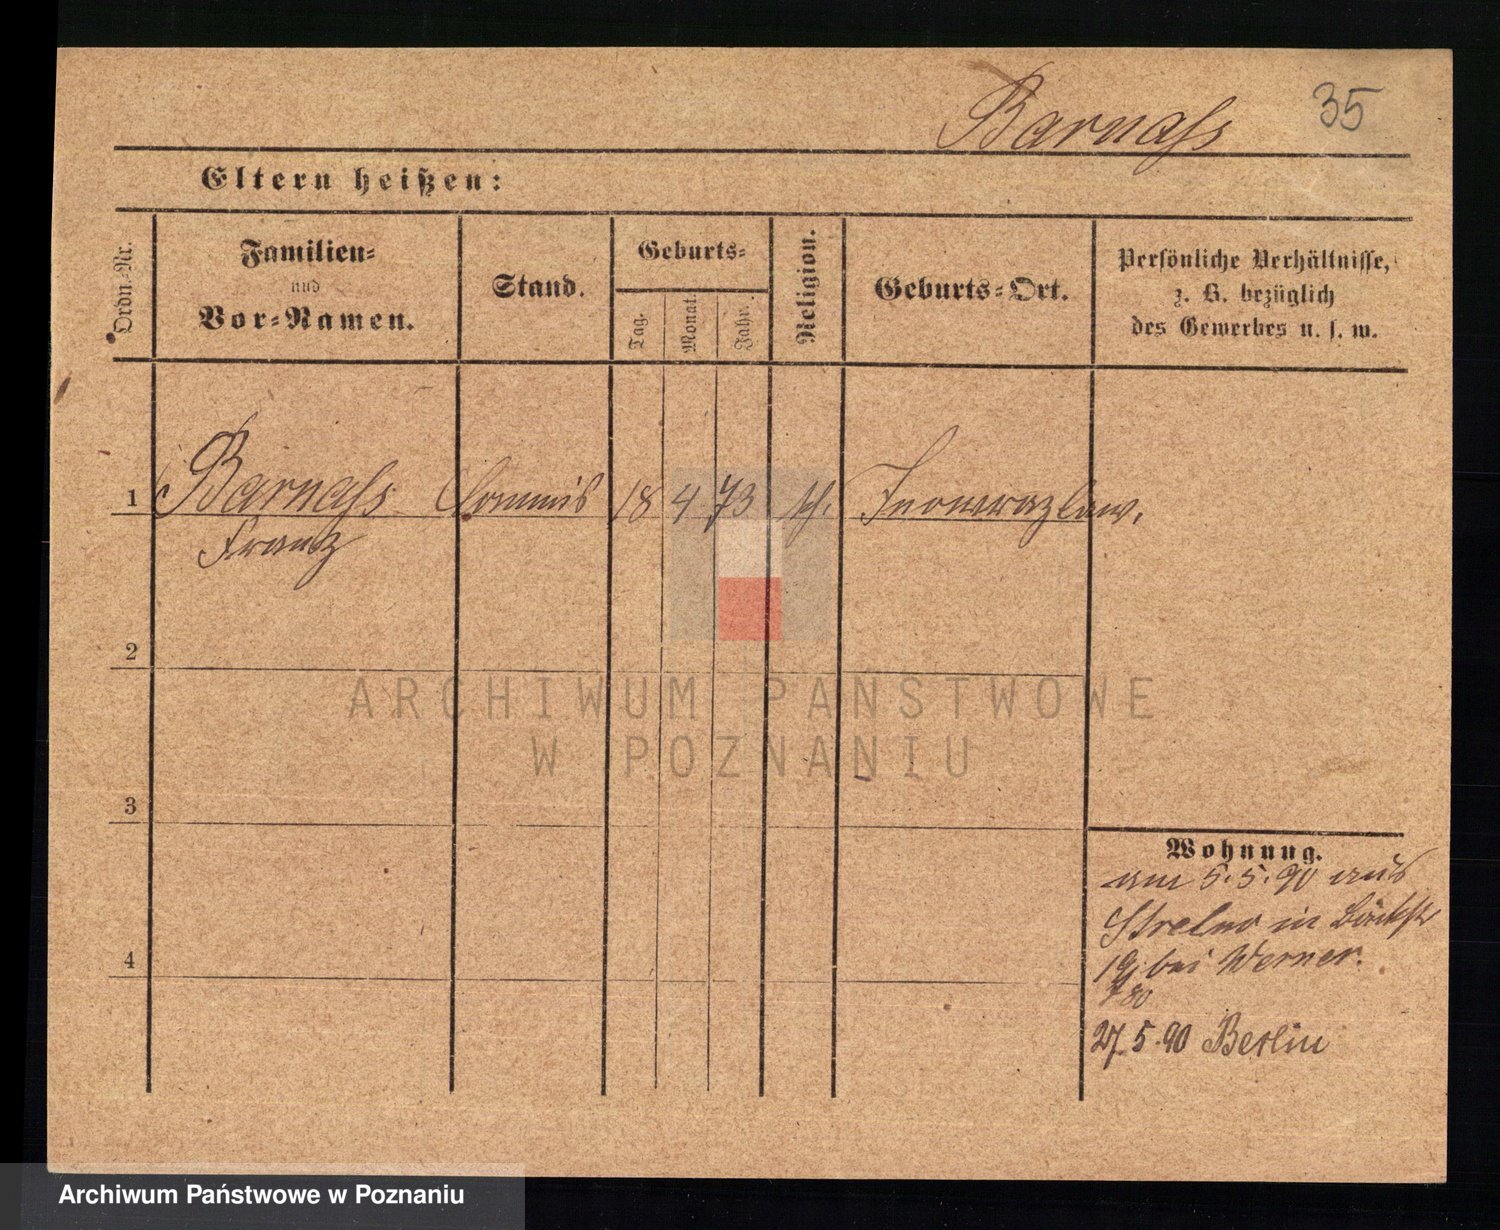 Barnass 35
Eltern heißen:
Ordn.-Nr.
Familien-
und
Vor-Namen.
Stand.
Geburts-
Tag.
Monat.
Jahr.
Religion.
Geburts-Ort.
Persönliche Verhältnisse,
z. B. bezüglich
des Gewerbes u. s. w.
1 Barnass Commis 18 4 73 Inowrazlaw.
Franz
2
ARCHIWUM PAŃSTWOWE
W POZNANIU
3
Wohnung.
am 5.5.90 aus
Strelno in
19 bei Werner.
4
27.5.90 Berlin
Archiwum Państwowe w Poznaniu